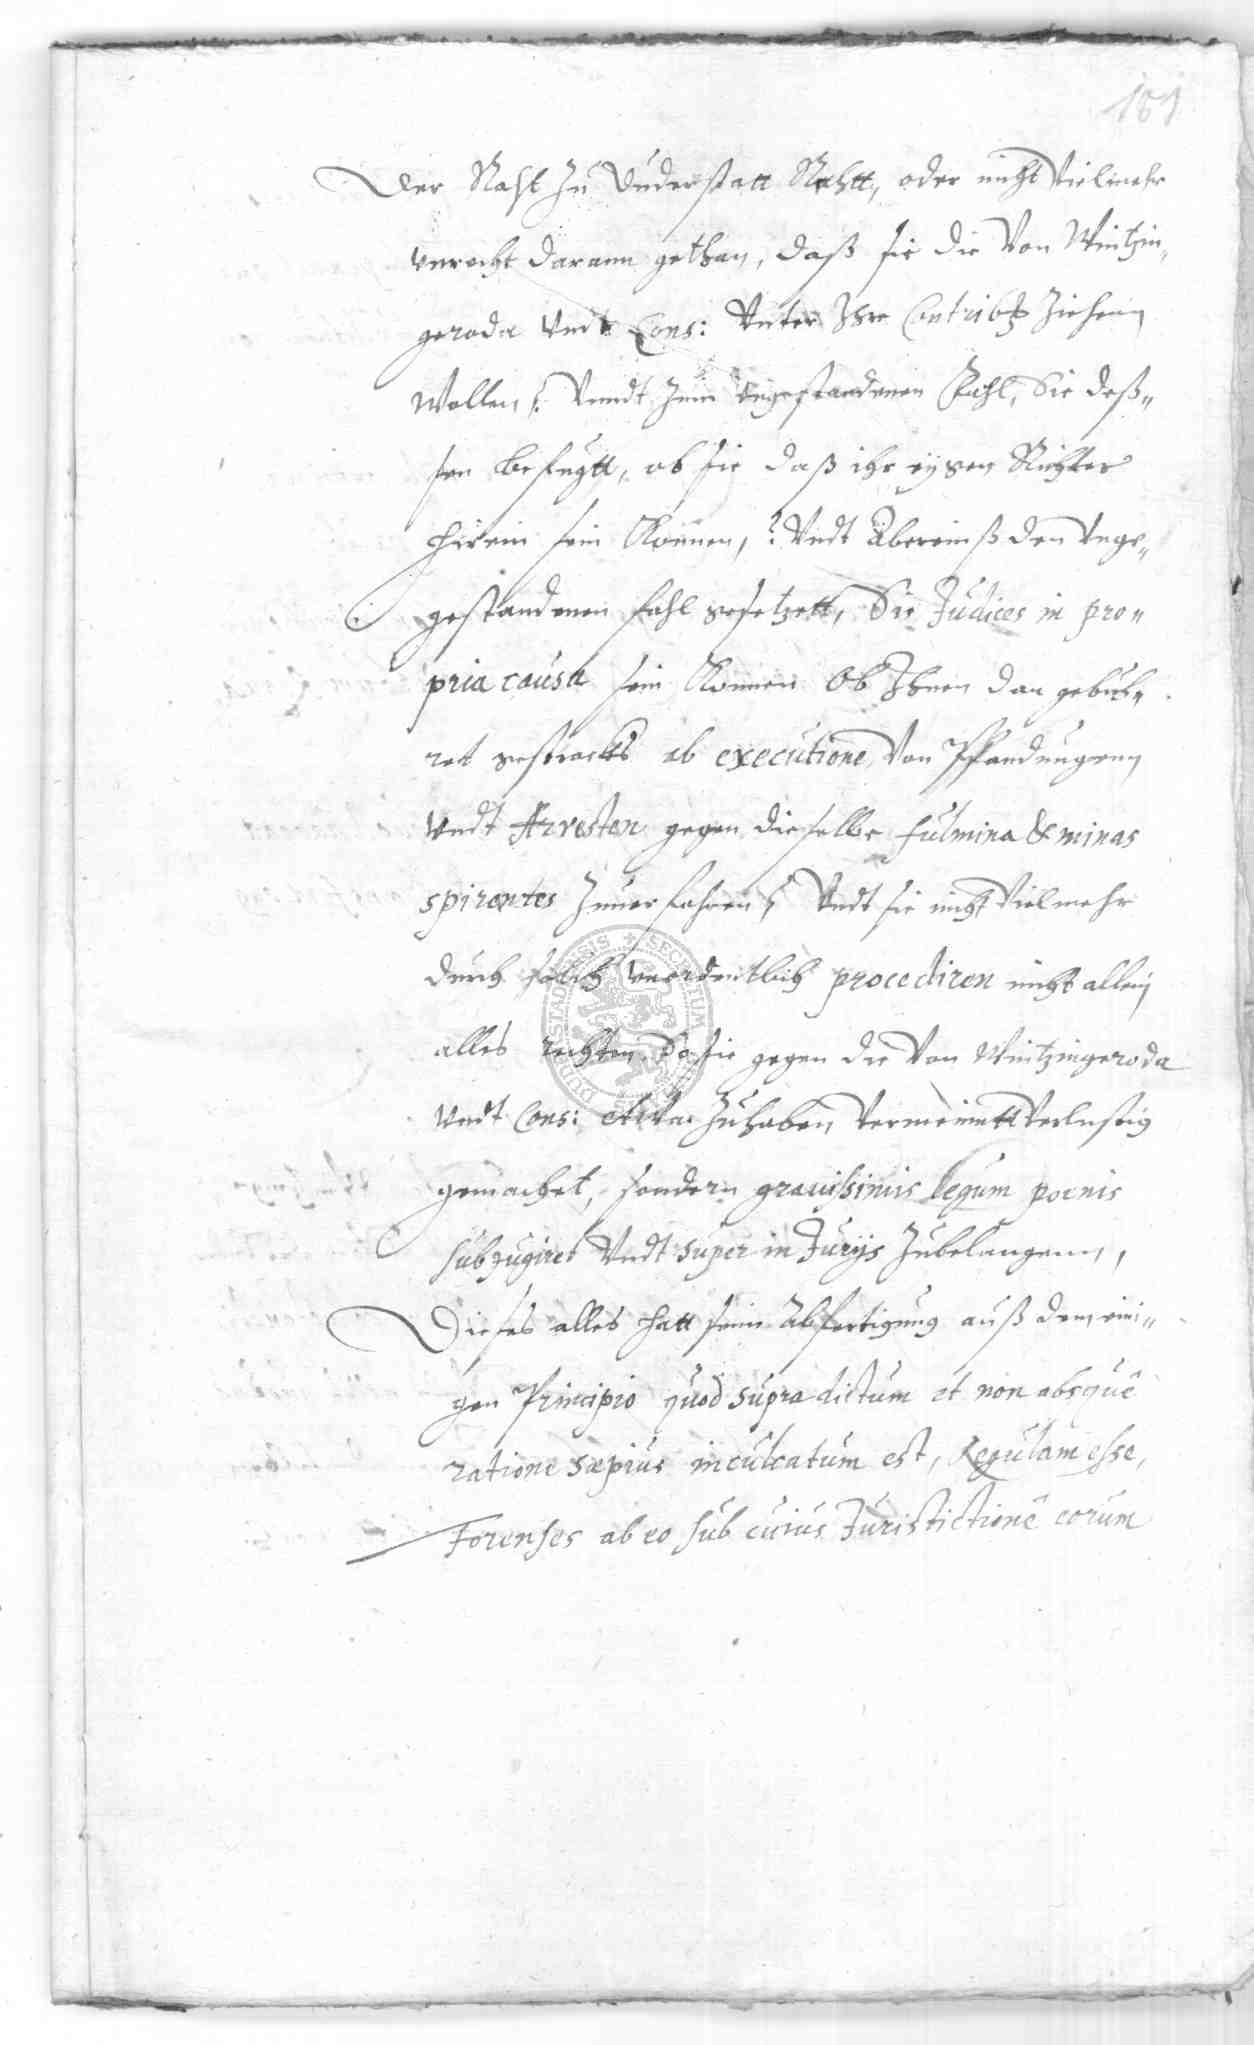 181
Der Raht zu Duderstatt Recht, oder nicht Vielmehr
vnrecht darann gethan, daß sie die Von Wintzin„
geroda Vndt Cons: Vnter Ihre Contrib: Ziehenn
Wollen, Vnndt zum Vngestandenen Fahl, Sie deß„
sen befugtt, ob sie daß ihr eygen Richter
hirein sein Konnen,? Vndt Abereinß den Vnge„
gestandenen fahl gesetzett, Sie Judices in pro„
pria causa sein Konnen Ob Ihnen dan gebüh„
ret gestracks ab executione Von Pfandungenn
Vndt Arresten gegen dieselbe fulmina & minas
spirentes Zuuerfahren, Vndt sie nicht Vielmehr
durch solch vnordentlich procediren nicht allein
alles rechten, So sie gegen die Von Wintzingeroda
Vndt Cons: etwa Zuhaben Vermeinett Verlustig
gemachet, sondern grauissimis legum poenis
subjugiret Vndt super in Jurijs Zubelangenn,
Dieses alles hatt seine Abfertigung auß dem eini„
gen Principio quod supra dictum et non absque
ratione sæpius inculcatum est, Regulam esse,
Forenses ab eo sub cuius Juristictione eorum
DUDERSTADENSIS + SECRETUM